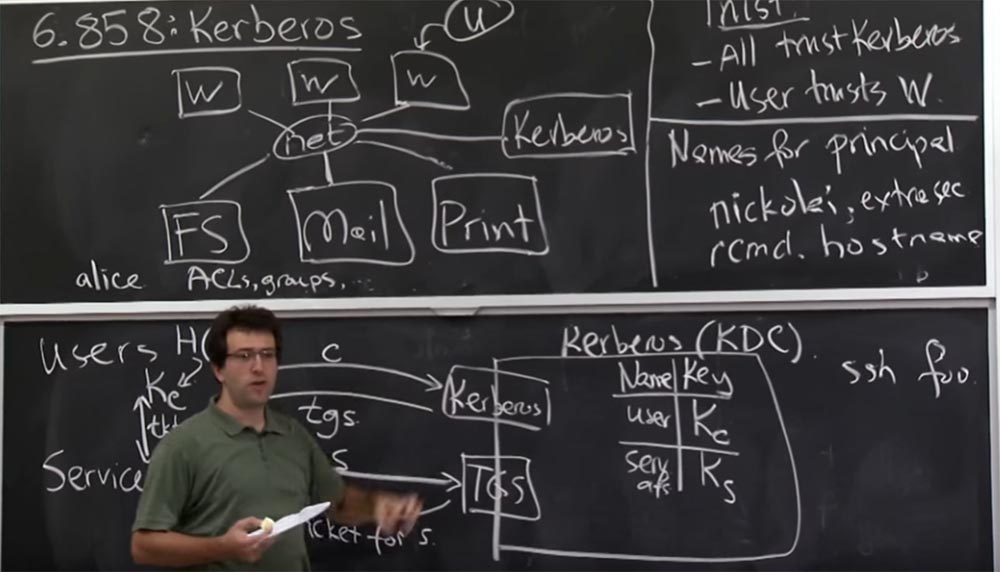 6.858: Kerberos
u
W W W
net
Kerberos
FS Mail Print
alice ACLs, groups, ..
Trust:
- All trust Kerberos
- User trusts W.
Names for principal
nickolai, extra sec
rcmd. hostname
Users H(
Kc
tkt
Service
c
tgs
s
ticket for s.
Kerberos
TGS
Kerberos (KDC).
Name Key
user Kc
serv Ks
afs
ssh foo